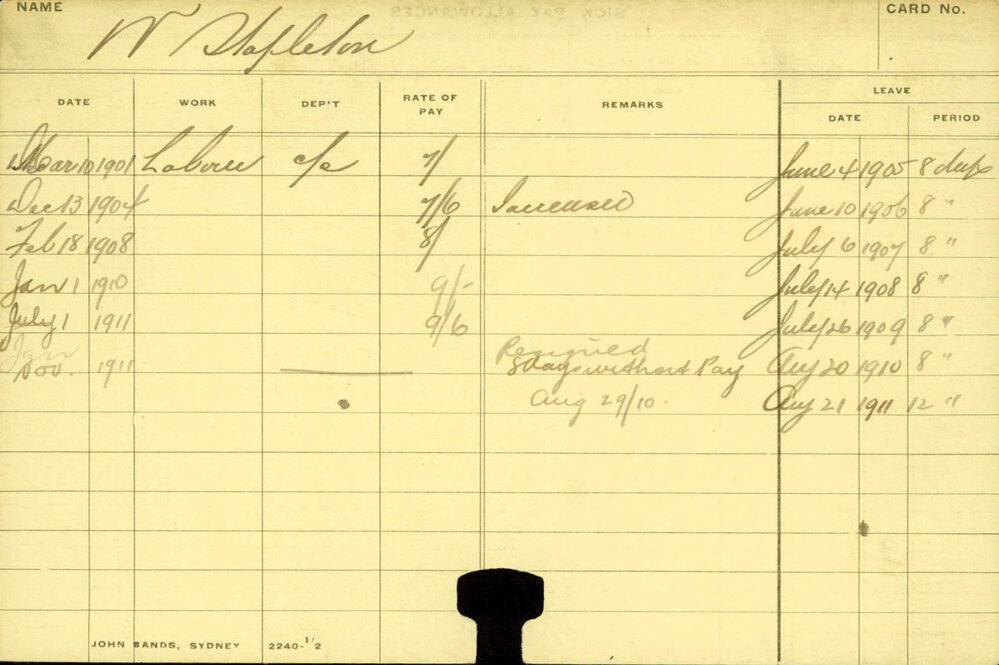 NAME CARD No.
W Stapleton
LEAVE
DATE WORK DEP'T RATE OF PAY REMARKS DATE PERIOD
Mar 10 1901 Labour c/e 7/ June 4 1905 8 days
Dec 13 1904 7/6 Increased June 10 1906 8 "
Feb 18 1908 8/ July 6 1907 8 "
Jan 1 1910 9/- July 14 1908 8 "
July 1 1911 9/6 July 26 1909 8 "
Jan Resigned
Nov. 1911 8 days without Pay Aug 20 1910 8 "
Aug 29/10. Aug 21 1911 12 "
JOHN SANDS, SYDNEY 2240-1/2